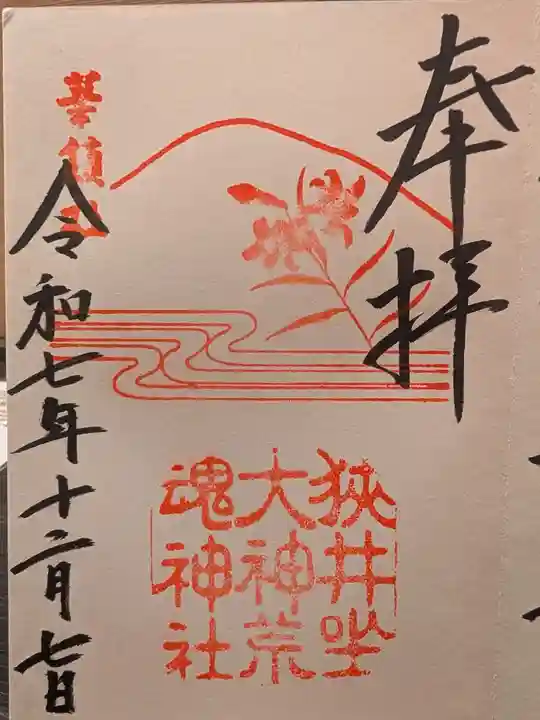 奉拝
狭井坐
大神荒
魂神社
華鎮社
令和七年十二月七日